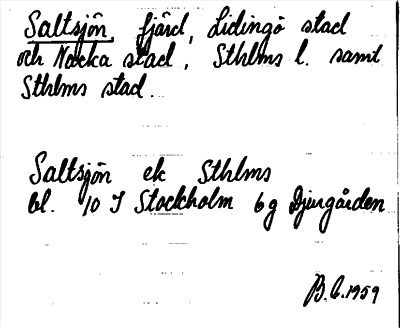 Saltsjön, fjärd, Lidingö stad
och Nacka stad, Sthlms l. samt
Sthlms stad.
Saltsjön ek Sthlms
bl. 10 I Stockholm 6g Djurgården
B.C.1959